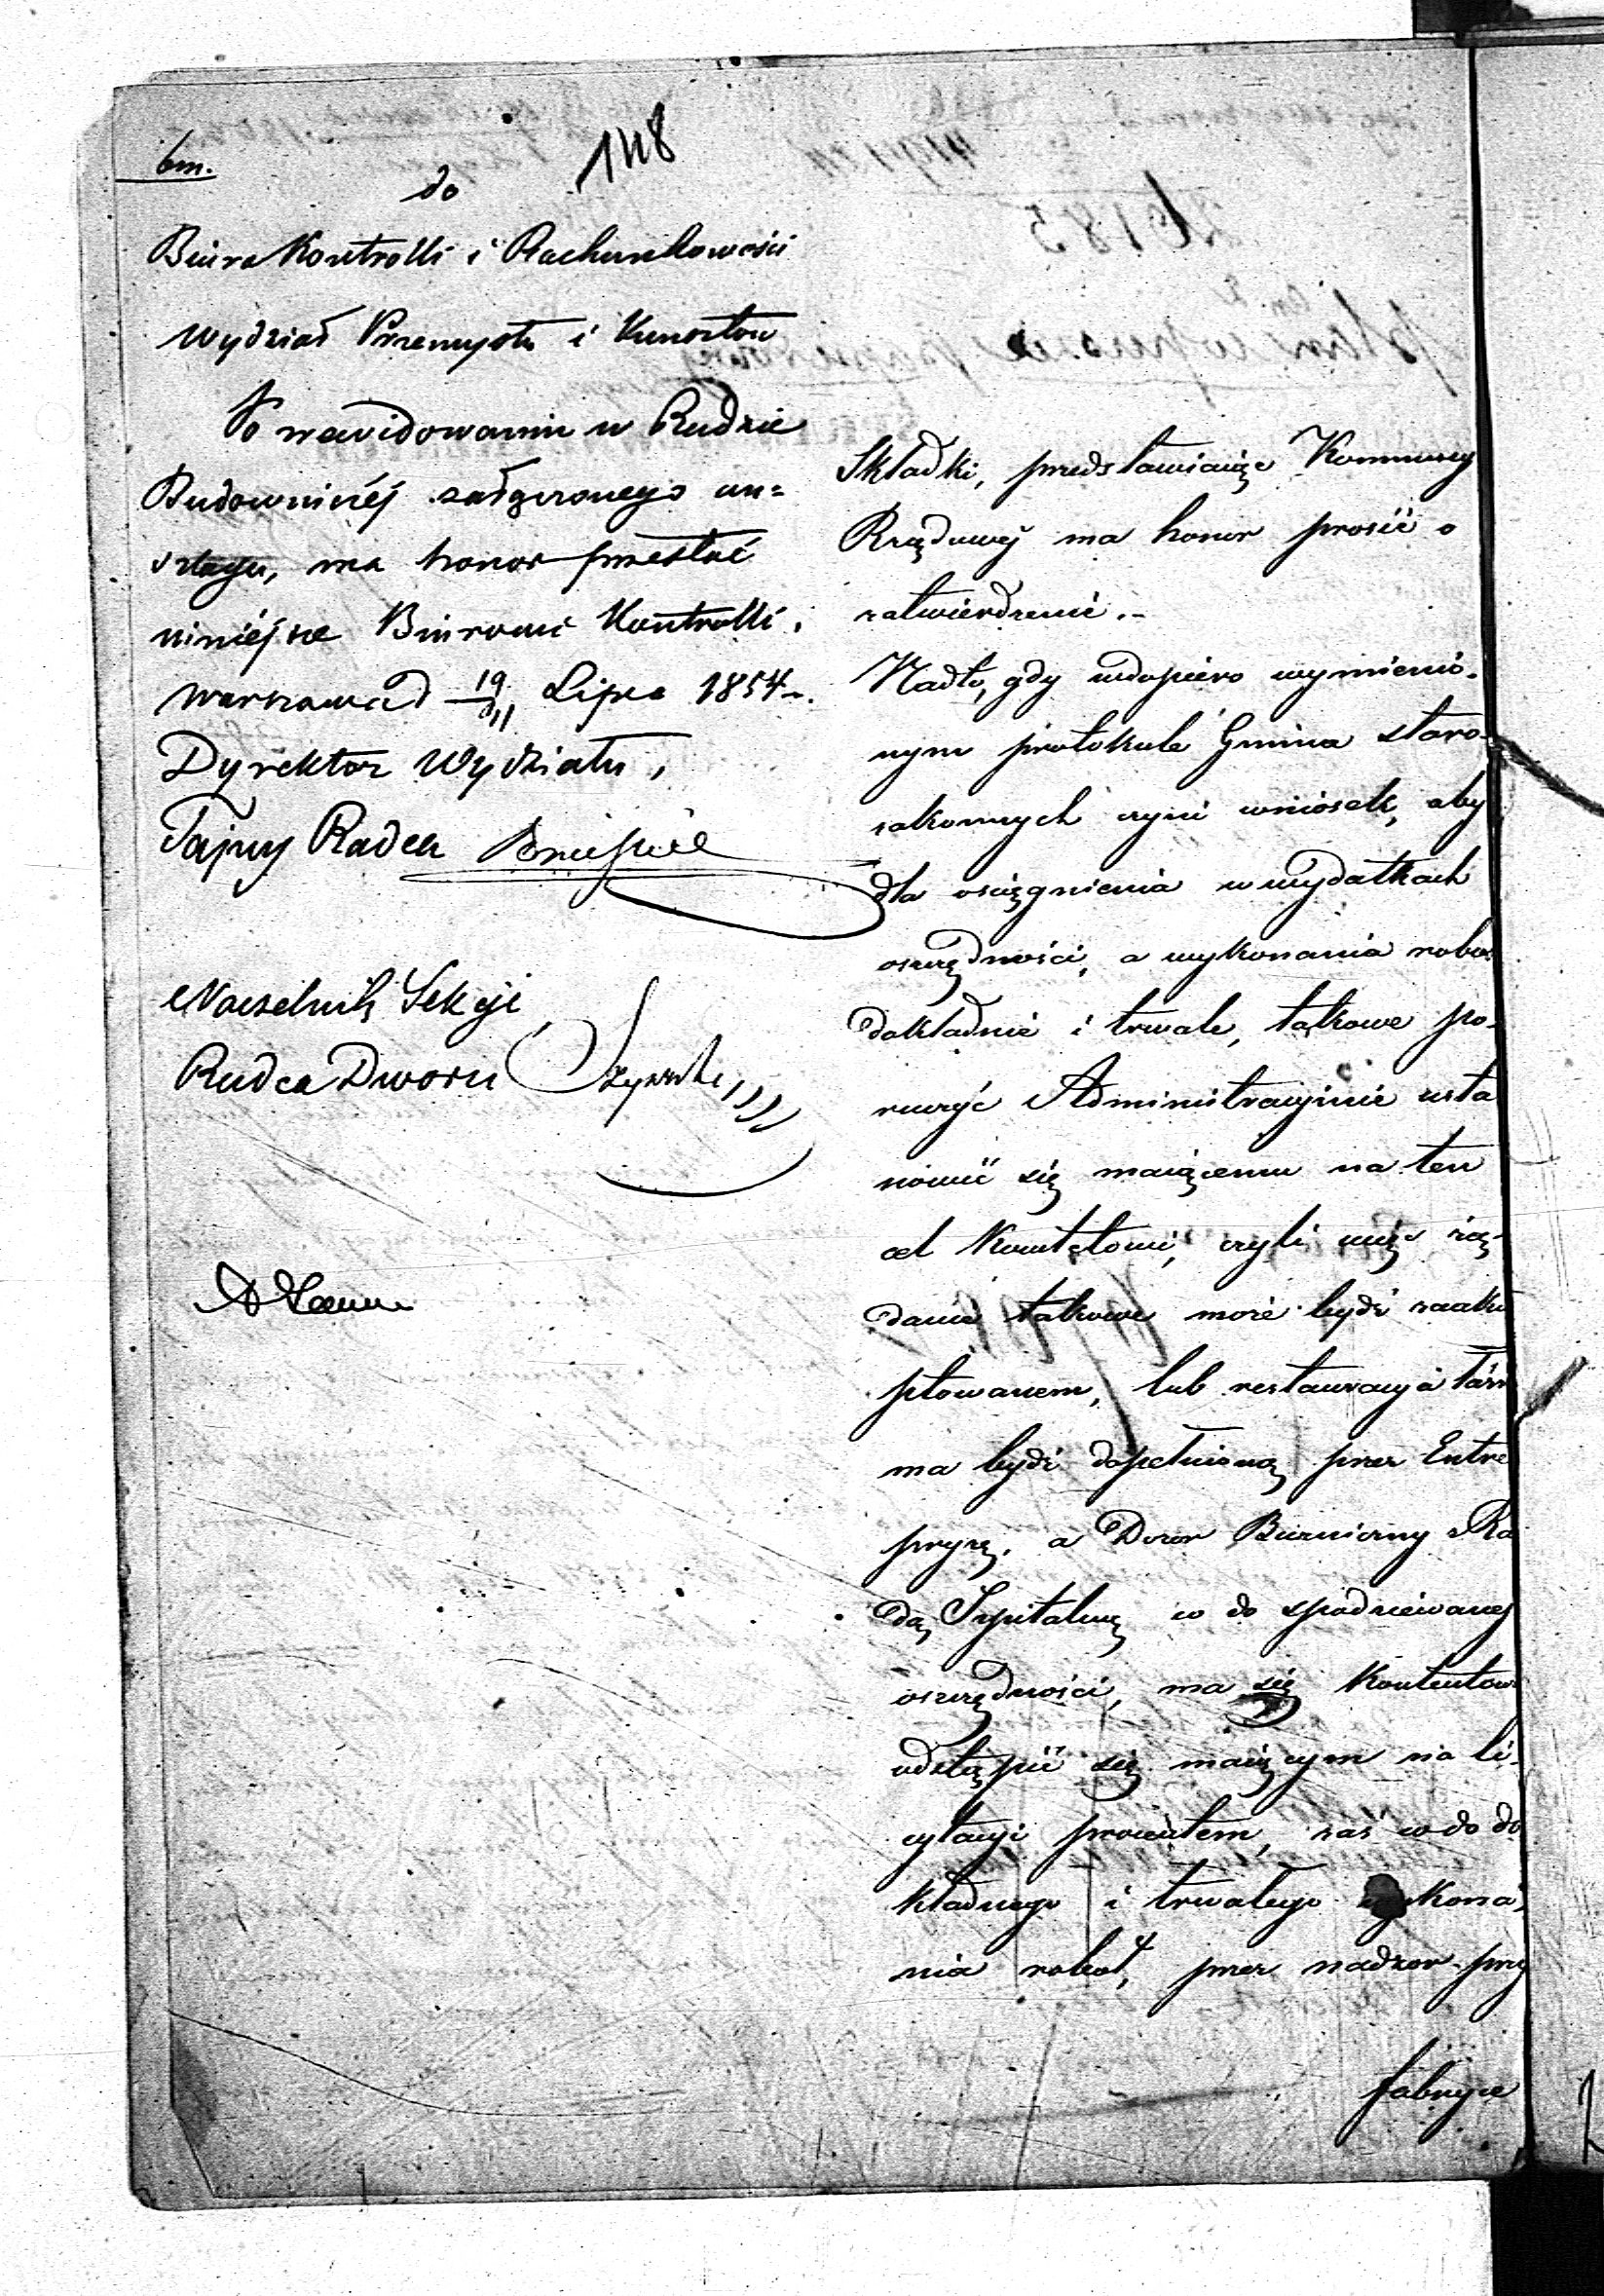 6m.
148
do
Biura Kontrolli i Rachunkowości
Wydział Przemysłu i Kunsztów
Po zrewidowaniu w Radzie
Budowniczéj załączonego an=
szlagu, ma honor przesłać
niniéjsze Biurowi Kontrolli.
Warszawa d 19 Lipca 1854
Dyrektor Wydziału,
Tajny Radca
Naczelnik Sekcji
Radca Dworu
Składki, predstawiaiąc Kommissyi
Rządowej ma honor prosić o
zatwierdzenie.-
Nadto, gdy wdopiero wymienio-
nym protokule Gmina staro-
zakonnych czyni wniosek, aby
dla osiągnienia w wydatkach
oszczędności, a wykonania robot
dokładnie i trwale, takowe po-
ruczyć Administracyinie usta
nowić się maiącemu na ten
cel Komitetowi, czyli więc żą-
danie takowe może bydź zaakce
ptowanem, lub restauracya Łaźni
ma bydź dopełnioną przez Entre
pryzę, a Dozor Bużniczny z Ra
dą Szpitalną co do spodziewanej
oszczędności, ma się kontentow
odstąpić się maiącym na li-
cytacyi procentem, zaś co do do
kładnego i trwałego wykona
nia robot, przez nadzor przy
fabryce